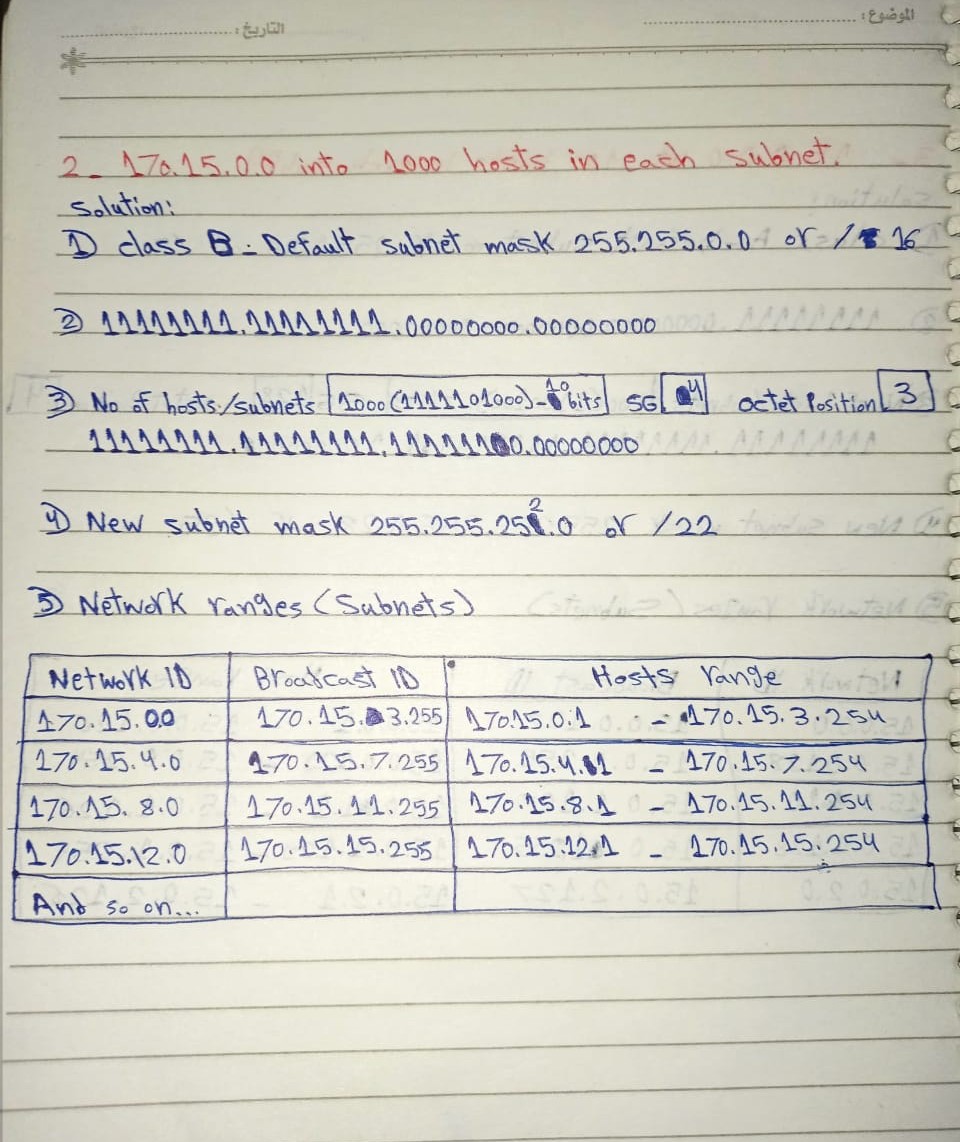 الموضوع:
التاريخ:
2- 170.15.0.0 into 1000 hosts in each subnet.
Solution:
1) class B - Default subnet mask 255.255.0.0 or / 16
2) 11111111.11111111.00000000.00000000
3) No of hosts/subnets 1000 (1111101000) - 10 bits SG 4 octet Position 3
11111111.11111111.11111100.00000000
4) New subnet mask 255.255.252.0 or /22
5) Network ranges (Subnets)
Network ID Broadcast ID Hosts range
170.15.0.0 170.15.3.255 170.15.0.1 - 170.15.3.254
170.15.4.0 170.15.7.255 170.15.4.1 - 170.15.7.254
170.15.8.0 170.15.11.255 170.15.8.1 - 170.15.11.254
170.15.12.0 170.15.15.255 170.15.12.1 - 170.15.15.254
And so on...